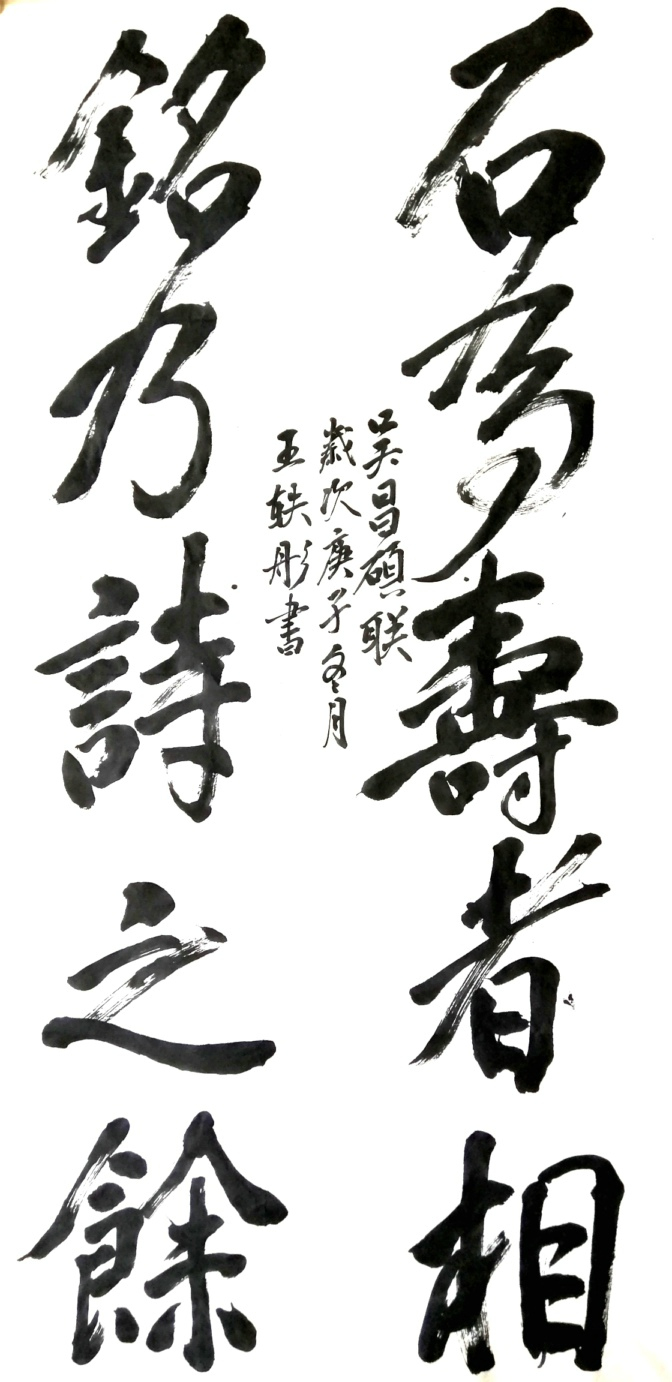 石為壽者相
吳昌碩联
歲次庚子冬月
王軼彤書
銘乃詩之餘